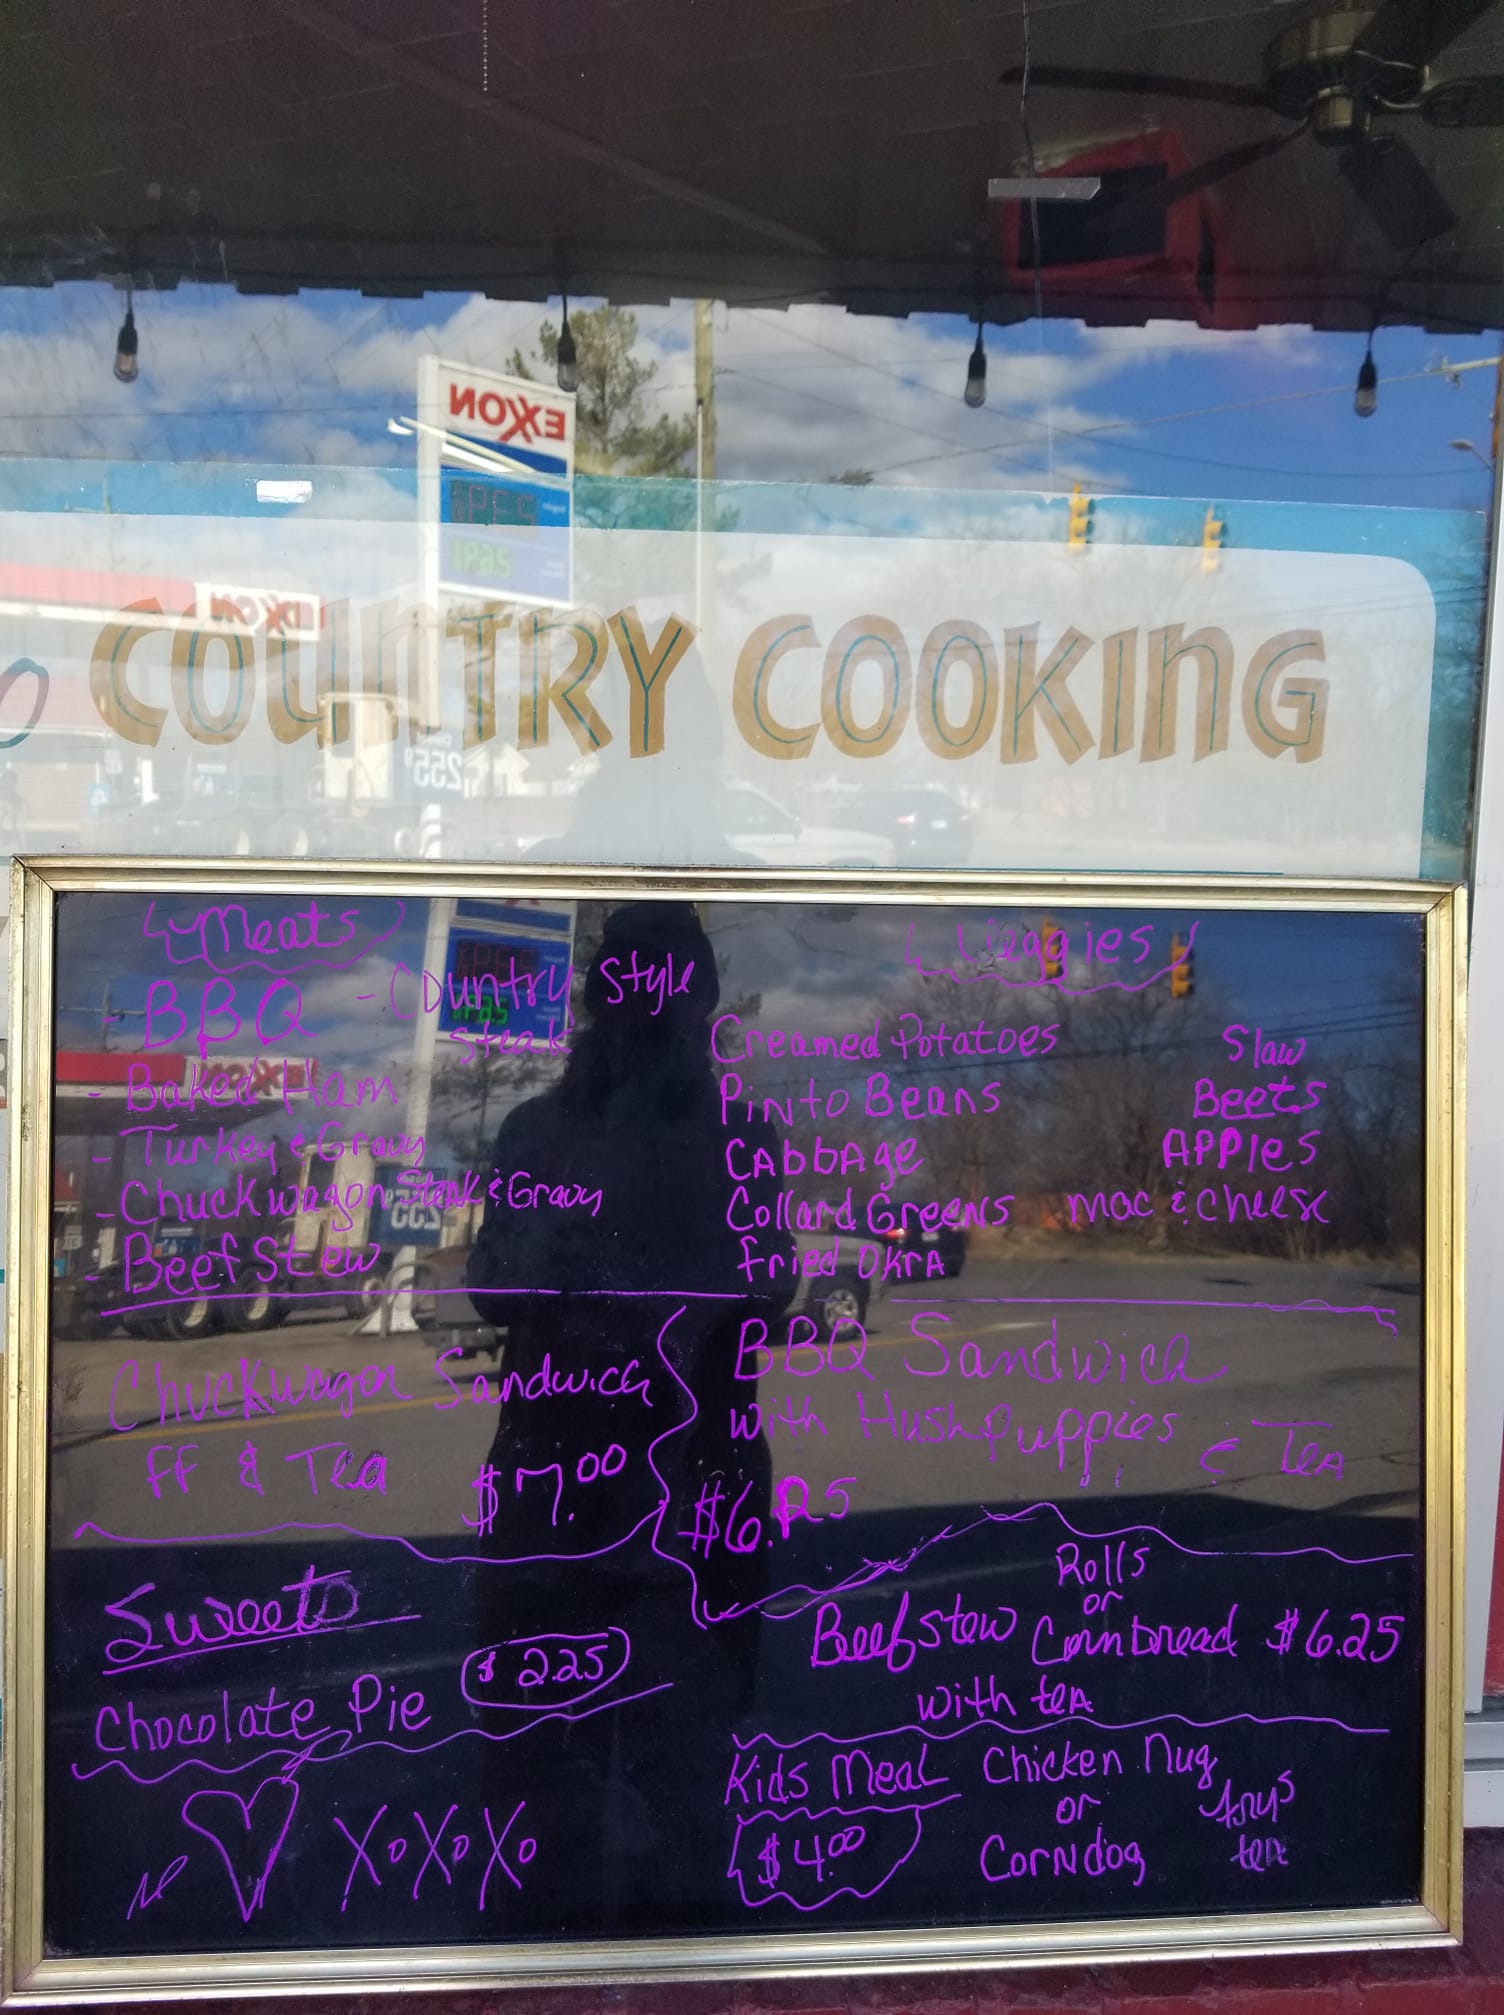 EXXON
EXXON
COUNTRY COOKING
2559
Meats
- BBQ - Country Style
Steak
- Baked Ham
- Turkey & Gravy
- Chuckwagon Steak & Gravy
- Beef Stew
Veggies
Creamed Potatoes Slaw
Pinto Beans Beets
Cabbage Apples
Collard Greens mac & cheese
fried OKrA
Chuckwagon Sandwich
FF & Tea $7.00
BBQ Sandwich
with Hushpuppies & Tea
$6.25
Sweets
Chocolate Pie $2.25
XoXoXo
Rolls
or
Beef stew Cornbread $6.25
with tea
Kids Meal Chicken Nug
or
$4.00 Corndog
frys
tea